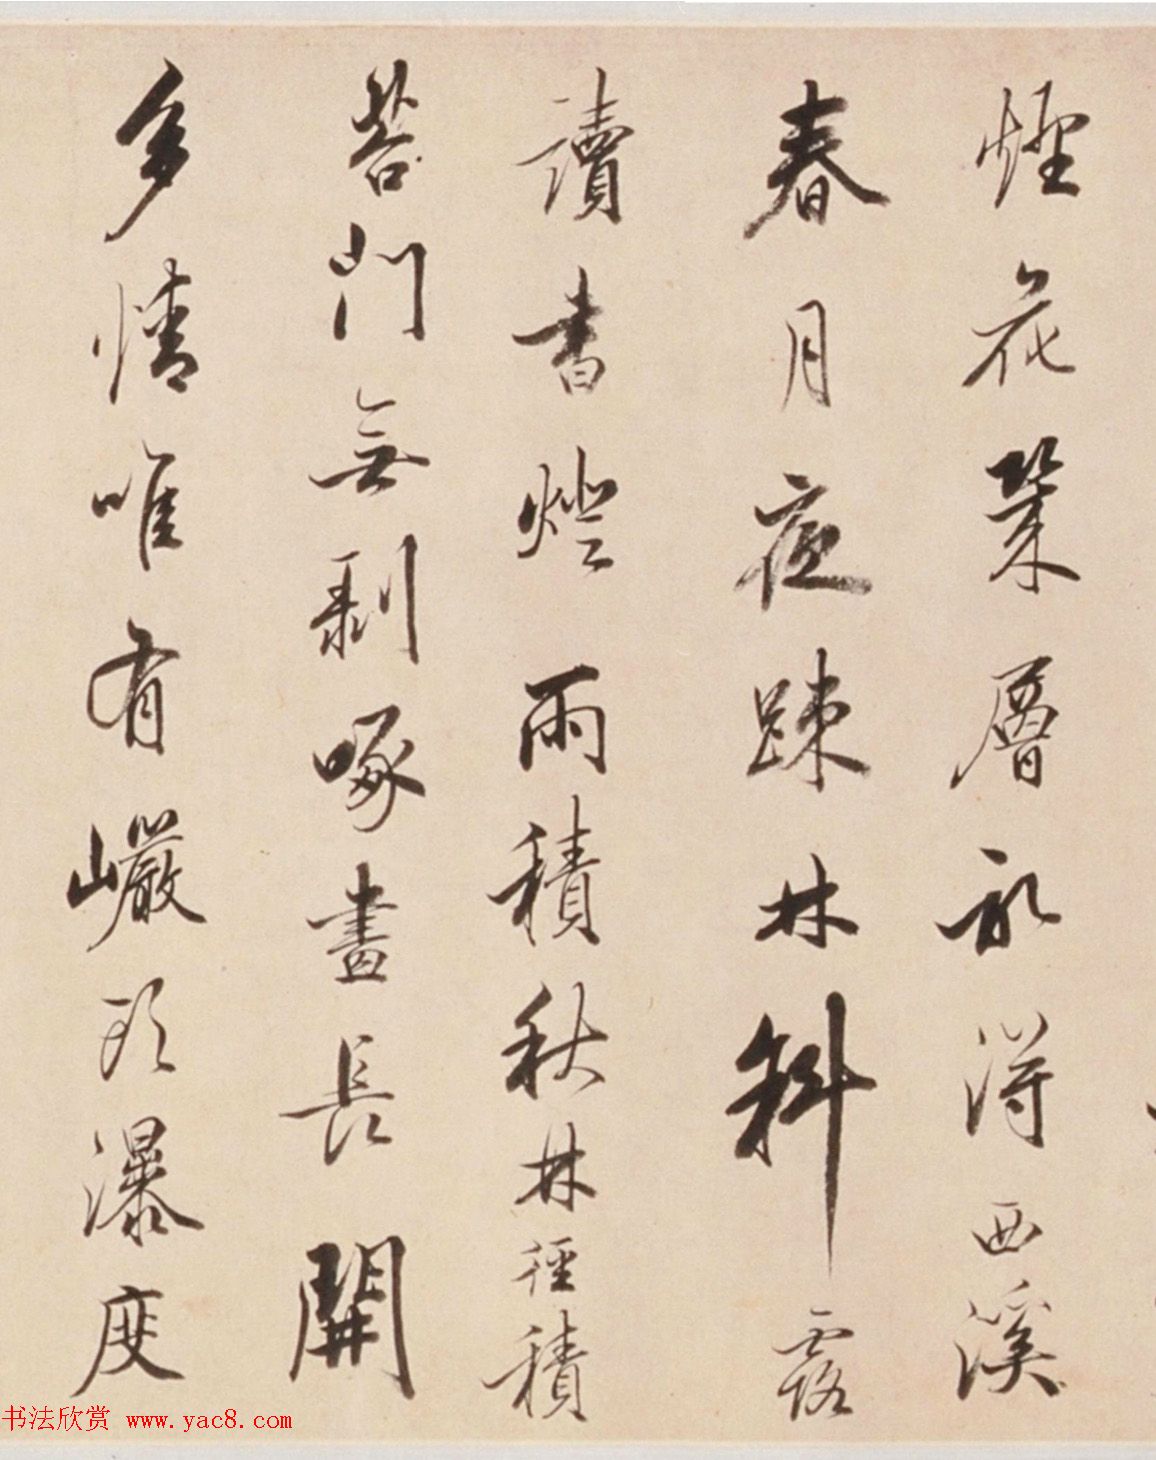 煙花築層永淂西溪
春月夜踈林斜露
讀書燈雨積秋林徑積
苔門無剥啄晝長開
多情唯有巖頭瀑度
书法欣赏 www.yac8.com